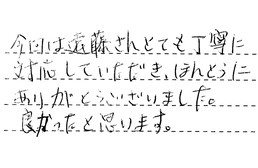 今回は遠藤さんとても丁寧に
対応していただき、ほんとうに
ありがとうございました。
良かったと思います。